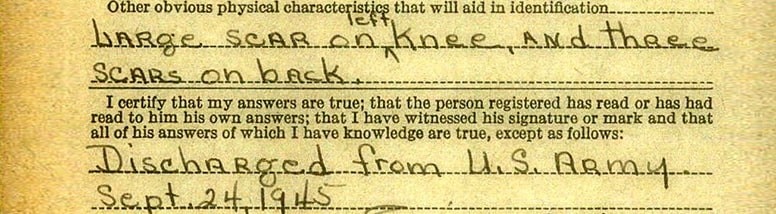 Other obvious physical characteristics that will aid in identification
left
LARGE SCAR on Knee, AND three
SCARS on back.
I certify that my answers are true; that the person registered has read or has had
read to him his own answers; that I have witnessed his signature or mark and that
all of his answers of which I have knowledge are true, except as follows:
Discharged from U.S. Army.
Sept. 24, 1945